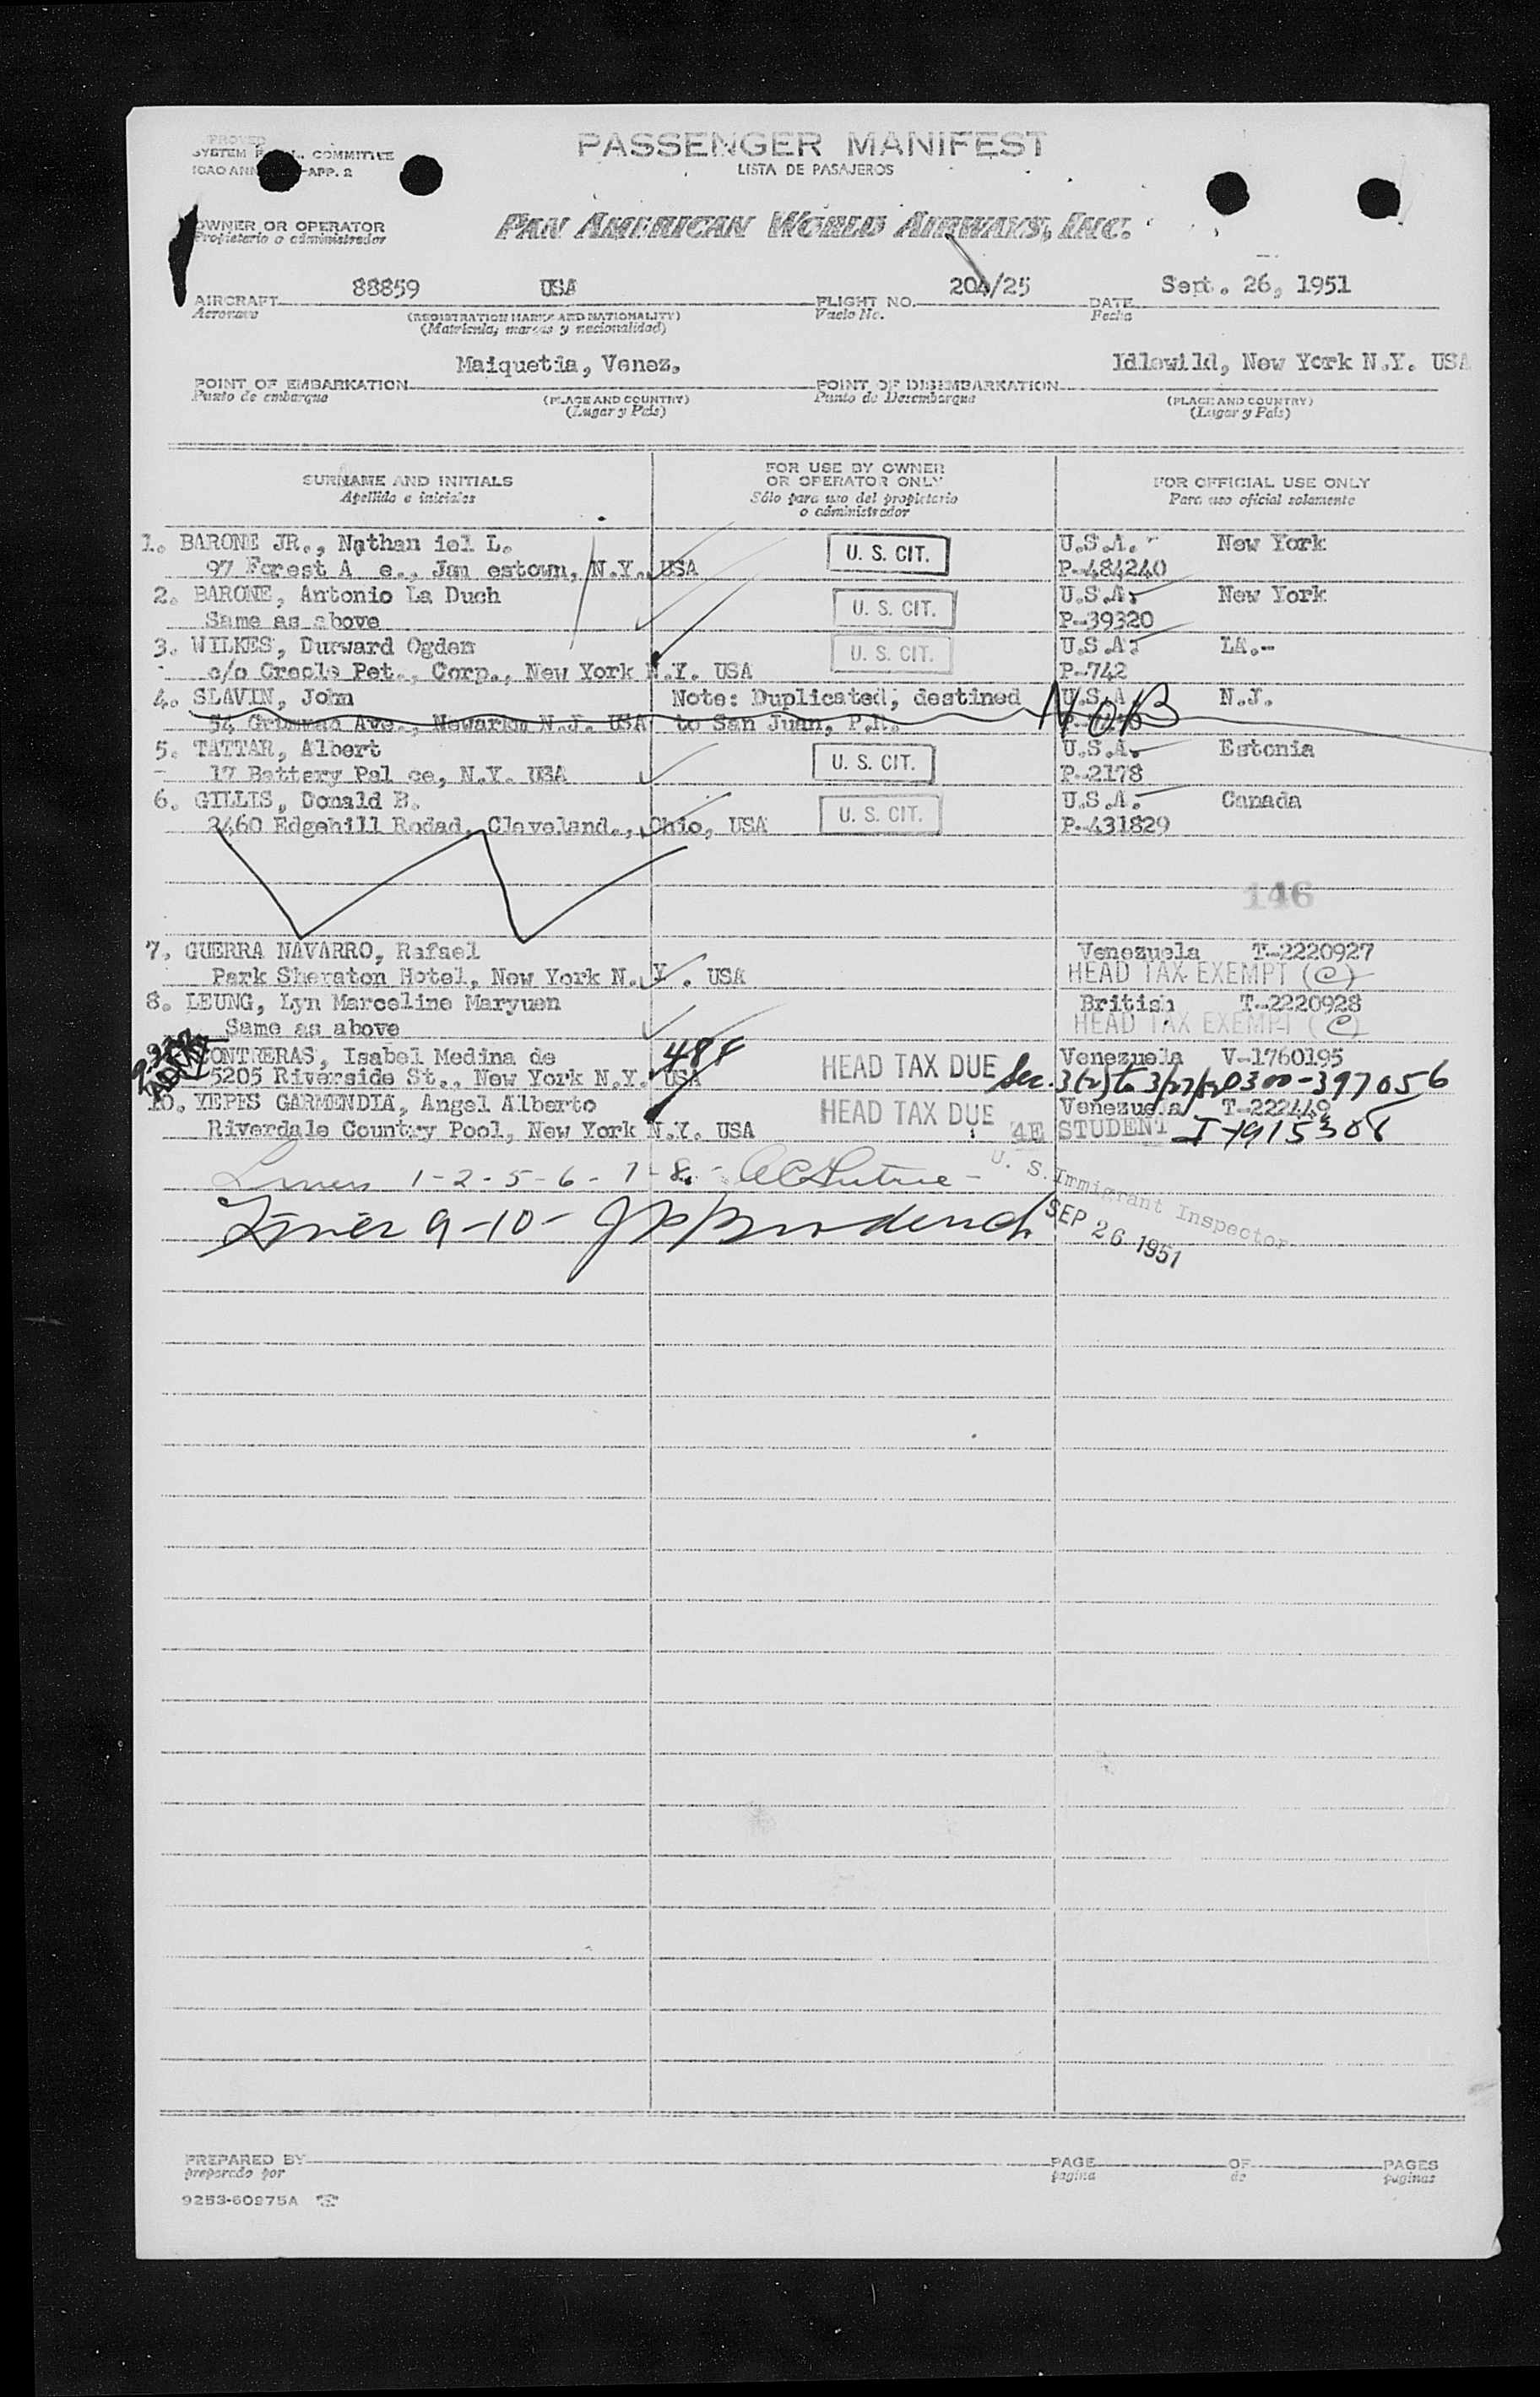 PROVED
SYSTEM COMMITTEE
ICAO ANN APP. 2
PASSENGER MANIFEST
LISTA DE PASAJEROS
OWNER OR OPERATOR
Propietario o administrador
PAN AMERICAN WORLD AIRWAYS, INC.
AIRCRAFT 88859 USA FLIGHT NO. 204/25 DATE Sept. 26, 1951
Aeronave (REGISTRATION MARKS AND NATIONALITY) Vuelo No. Fecha
(Matricula, marcas y nacionalidad)
POINT OF EMBARKATION Maiquetia, Venez. POINT OF DISEMBARKATION Idlewild, New York N.Y. USA
Punto de embarque (PLACE AND COUNTRY) Punto de Desembarque (PLACE AND COUNTRY)
(Lugar y Pais) (Lugar y Pais)
SURNAME AND INITIALS FOR USE BY OWNER OR OPERATOR ONLY FOR OFFICIAL USE ONLY
Apellido e iniciales Sólo para uso del propietario o administrador Para uso oficial solamente
1. BARONE JR., Nathan iel L. U. S. CIT. U.S.A. New York
97 Forest A e., Jam estown, N.Y. USA P-484240
2. BARONE, Antonio La Duch U. S. CIT. U.S.A. New York
Same as above P-39320
3. WILKES, Durward Ogden U. S. CIT. U.S.A. LA.-
c/o Creole Pet., Corp., New York N.Y. USA P-742
4. SLAVIN, John Note: Duplicated, destined NOB U.S.A. N.J.
54 Ave., Newark N.J. USA to San Juan, P.R.
5. TATTAR, Albert U. S. CIT. U.S.A. Estonia
17 Battery Pal ce, N.Y. USA P-2178
6. GILLIS, Donald B. U. S. CIT. U.S.A. Canada
2460 Edgehill Rodad, Cleveland., Ohio, USA P-431829
146
7. GUERRA NAVARRO, Rafael Venezuela T-2220927
Park Sheraton Hotel, New York N. Y. USA HEAD TAX EXEMPT (C)
8. LEUNG, Lyn Marceline Maryuen British T-2220928
Same as above HEAD TAX EXEMPT (C)
CONTRERAS, Isabel Medina de 484 HEAD TAX DUE Venezuela V-1760195
5205 Riverside St., New York N.Y. USA Sec. 3(2) to 0300-397056
10. YEPES GARMENDIA, Angel Alberto HEAD TAX DUE Venezuela T-222449
Riverdale Country Pool, New York N.Y. USA 4E STUDENT I-1915308
Lines 1-2-5-6-7-8-
Lines 9-10-
U. S. Immigrant Inspector
SEP 26 1951
PREPARED BY PAGE OF PAGES
preparado por pagina de paginas
9253-60975A